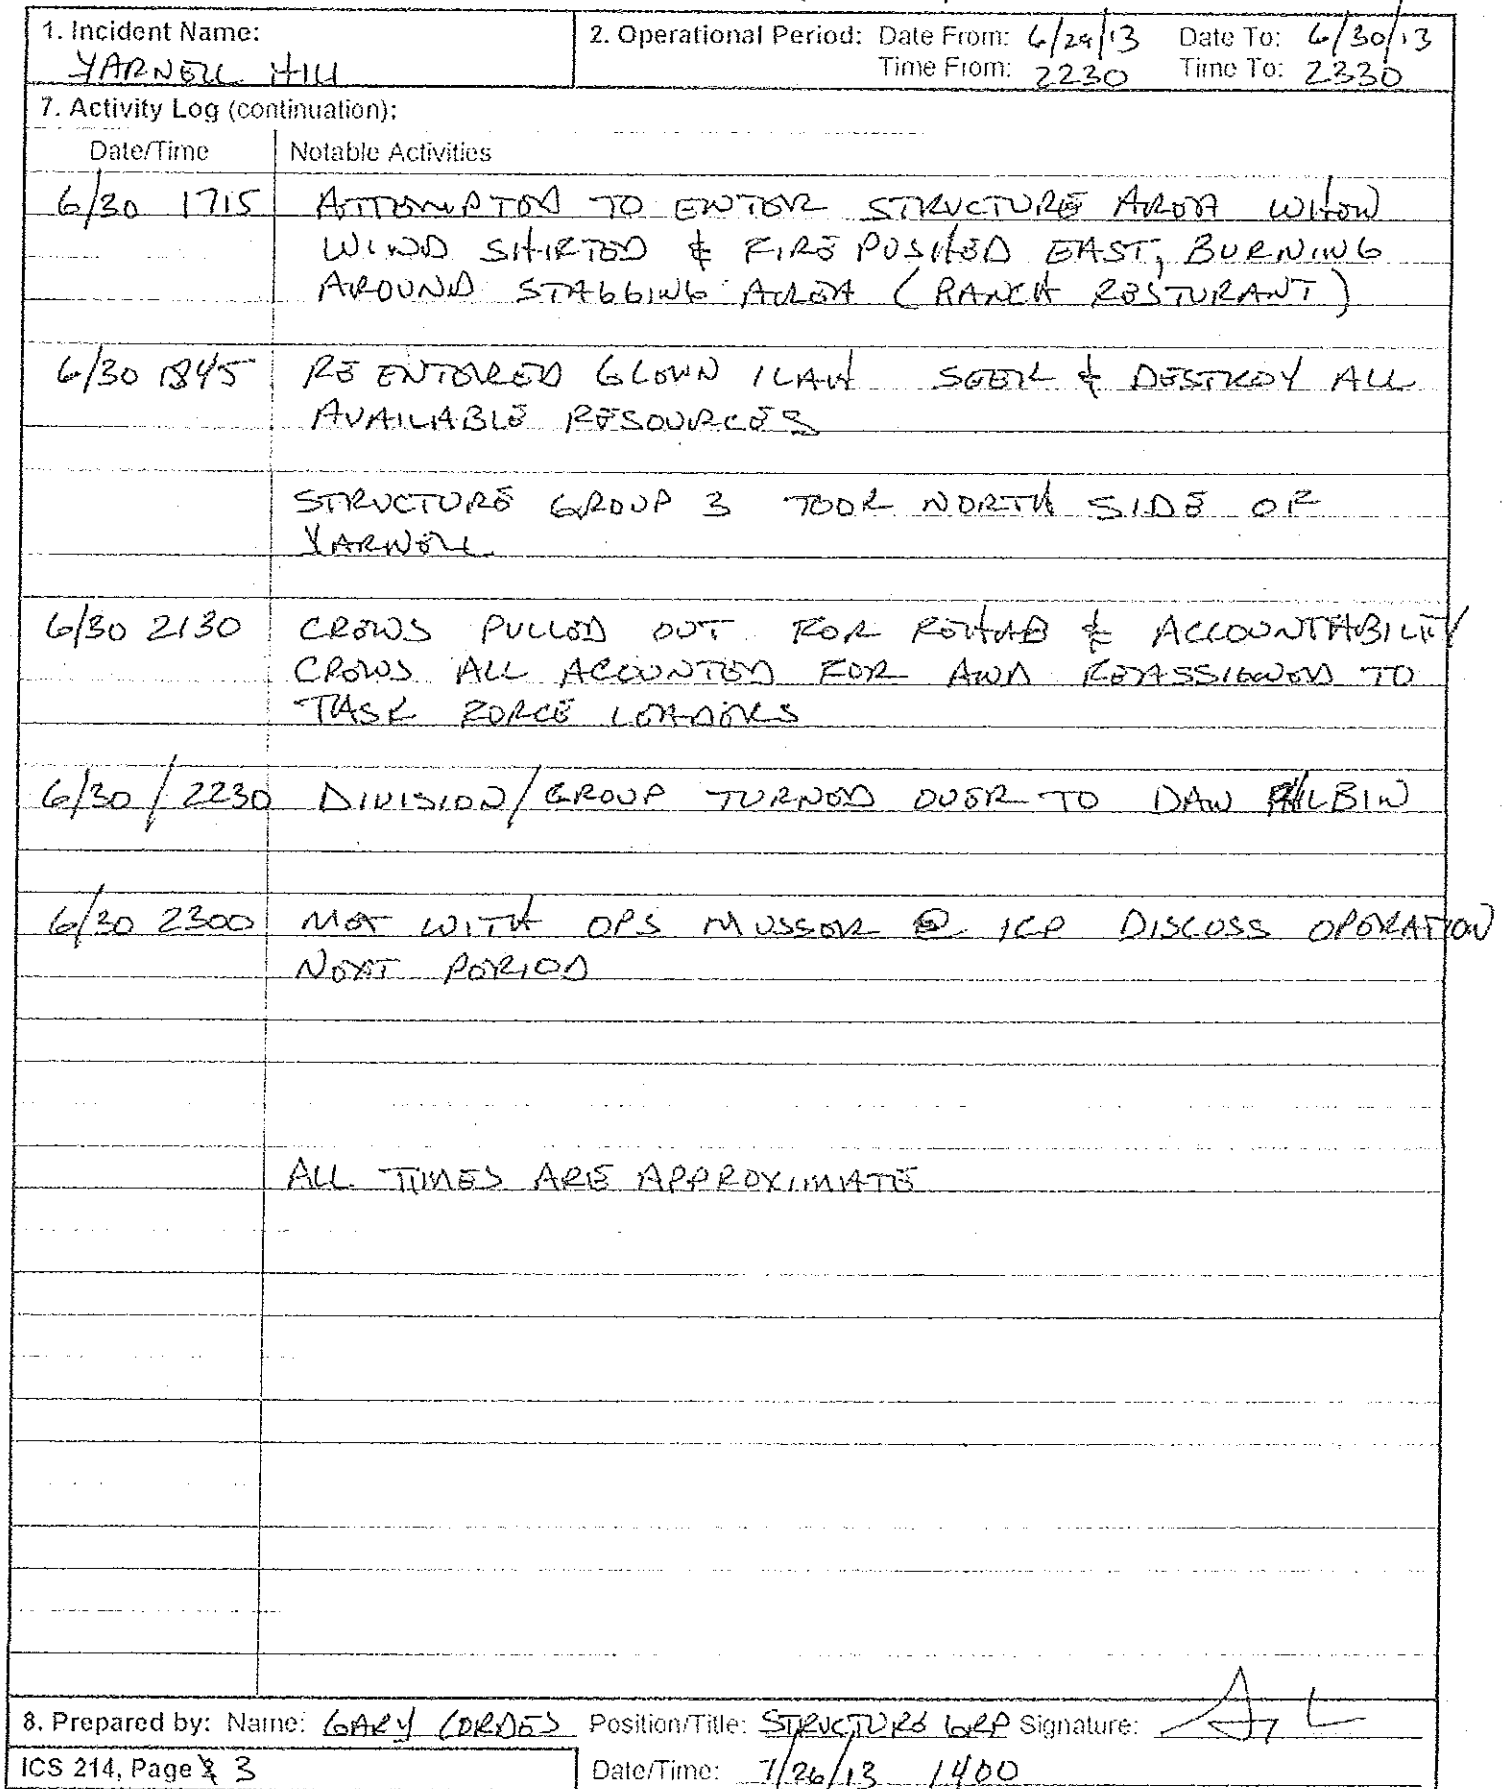 1. Incident Name:
YARNELL HILL
2. Operational Period: Date From: 6/29/13 Date To: 6/30/13
Time From: 2230 Time To: 2330
7. Activity Log (continuation):
Date/Time Notable Activities
6/30 1715 ATTEMPTED TO ENTER STRUCTURE AREA WHEN
WIND SHIFTED & FIRE PUSHED EAST, BURNING
AROUND STAGGING AREA (RANCH RESTURANT)
6/30 1845 RE ENTERED GLENN ILAH SEEK & DESTROY ALL
AVAILABLE RESOURCES
STRUCTURE GROUP 3 TOOK NORTH SIDE OF
YARNELL
6/30 2130 CREWS PULLED OUT FOR REHAB & ACCOUNTABILITY
CREWS ALL ACOUNTED FOR AND REASSIGNED TO
TASK FORCE LEADERS
6/30 / 2230 DIVISION/GROUP TURNED OVER TO DAN PHILBIN
6/30 2300 MET WITH OPS MUSSER @ ICP DISCUSS OPERATION
NEXT PERIOD
ALL TIMES ARE APPROXIMATE
8. Prepared by: Name: GARY CORDES Position/Title: STRUCTURE GRP Signature:
ICS 214, Page 3
Date/Time: 7/26/13 1400